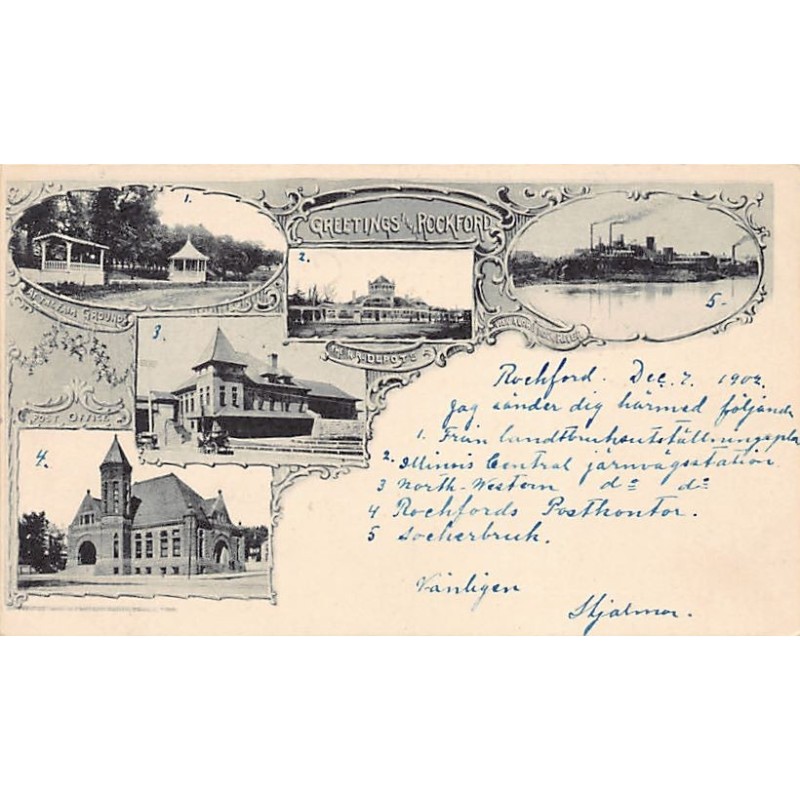 1.
GREETINGS from ROCKFORD
2.
5-
AT FAIR GROUNDS
3.
R.R. DEPOTS
POST OFFICE
4.
Rockford. Dec. 7. 1902.
Jag sänder dig härmed följande
1. Från landtbruksutställningspla
2. Illinois Central järnvägsstation
3 North-Western do do
4 Rockfords Postkontor.
5 Sockerbruk.
Vänligen
Hjalmar.